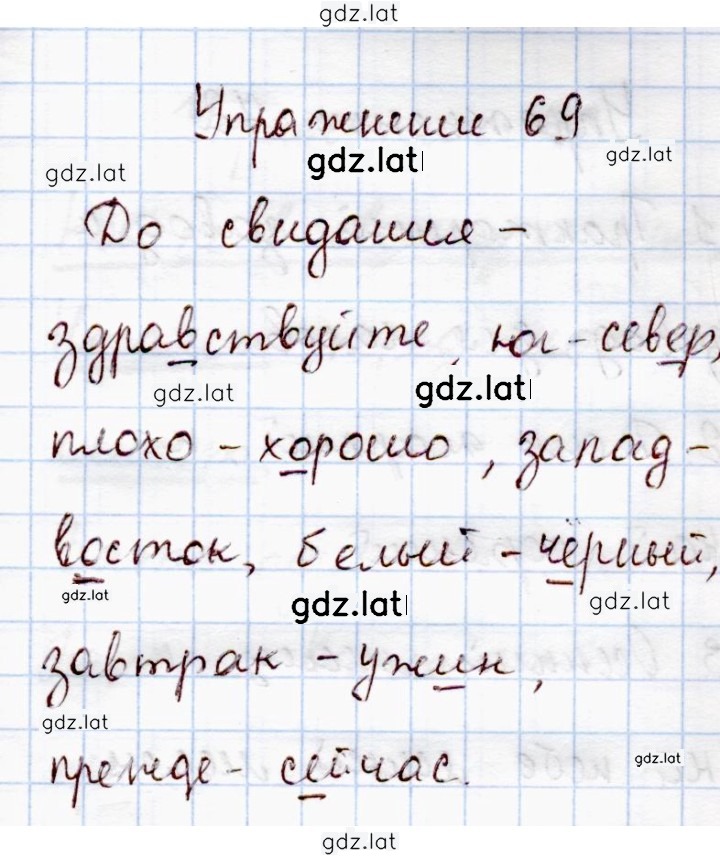 gdz.lat
Упражнение 69
gdz.lat gdz.lat gdz.lat
До свидания -
здравствуйте, юг - север,
gdz.lat gdz.lat
плохо - хорошо, запад -
восток, белый - чёрный,
gdz.lat gdz.lat gdz.lat
завтрак - ужин,
gdz.lat
прежде - сейчас.
gdz.lat
gdz.lat